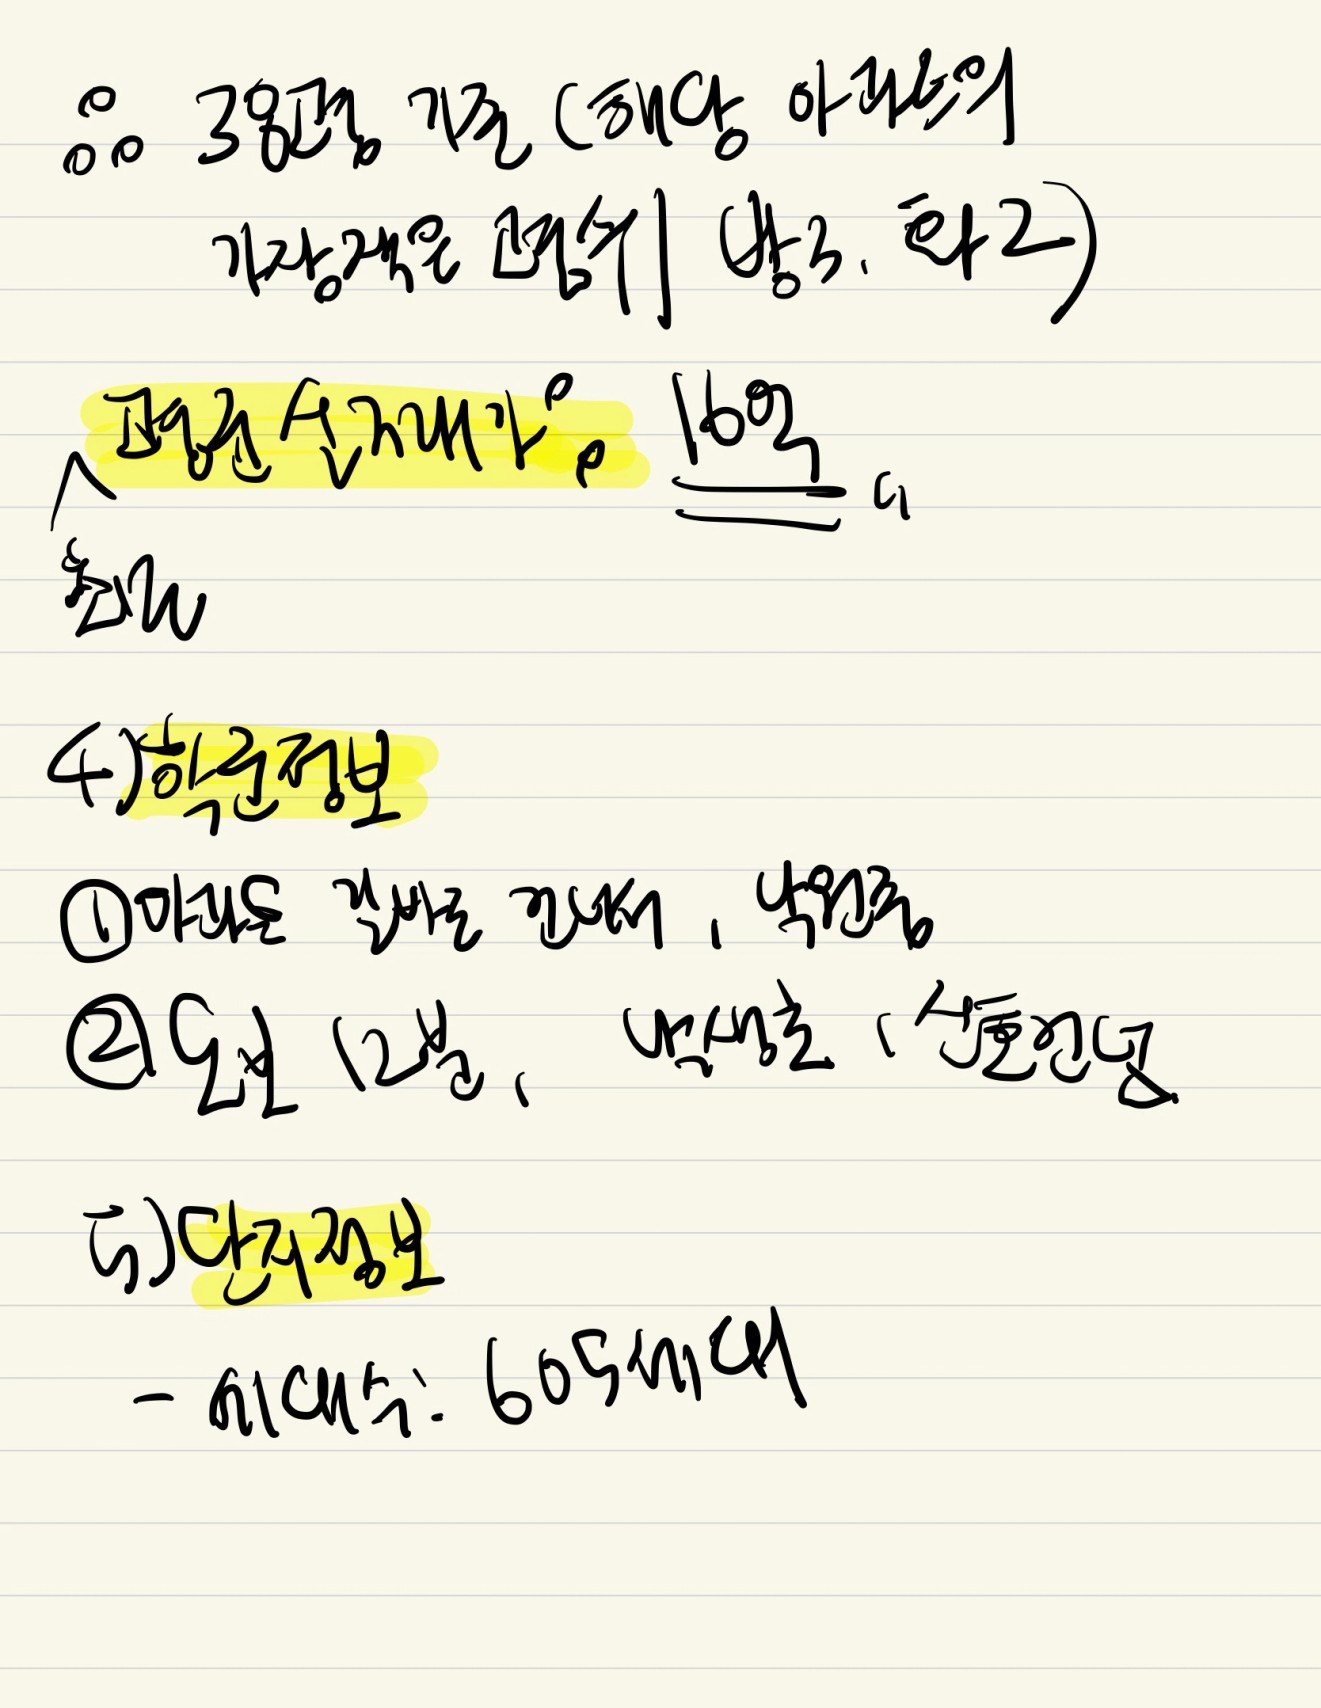 ∴ 38평 기준 (해당 아파트의
가장작은 평수 | 방3, 화2)
평균 실거래가: 16억
최근
4) 학군정보
① 아파트 길바로 건너서, 낙원중
② 도보 12분, 낙생초,
5) 단지정보
- 세대수: 605세대